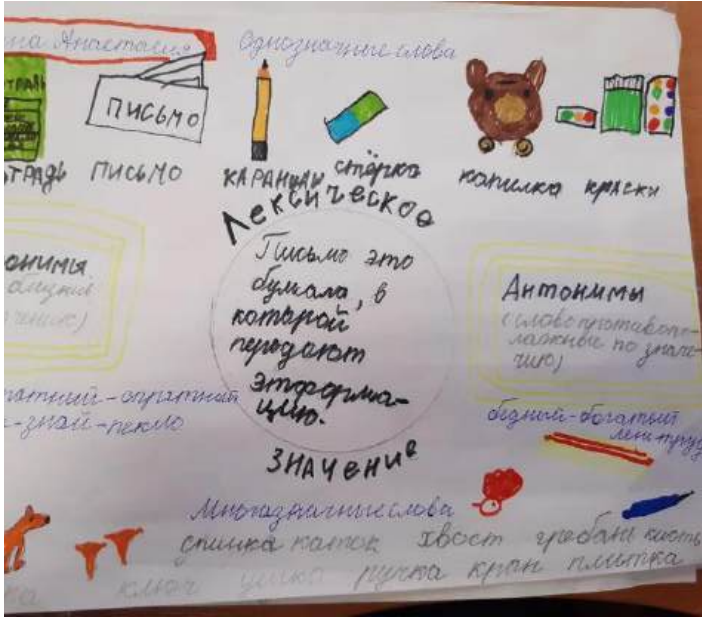 на Анастасия
Однозначные слова
ТРАДЬ
ПИСЬМО
ТРАДЬ
ПИСЬМО
КАРАНДАШ
стёрка
копилка
краски
Лексическое
Письмо это
бумага, в
которой
передают
этформа-
цию.
ЗНАЧЕНИЕ
онимы
Антонимы
(слова противопо-
ложные по значе-
нию)
-опрятный
-зной-пекло
бедный-богатый
лень-труд
Многозначные слова
спинка каток хвост гребень кисть
ключ ручка кран плитка